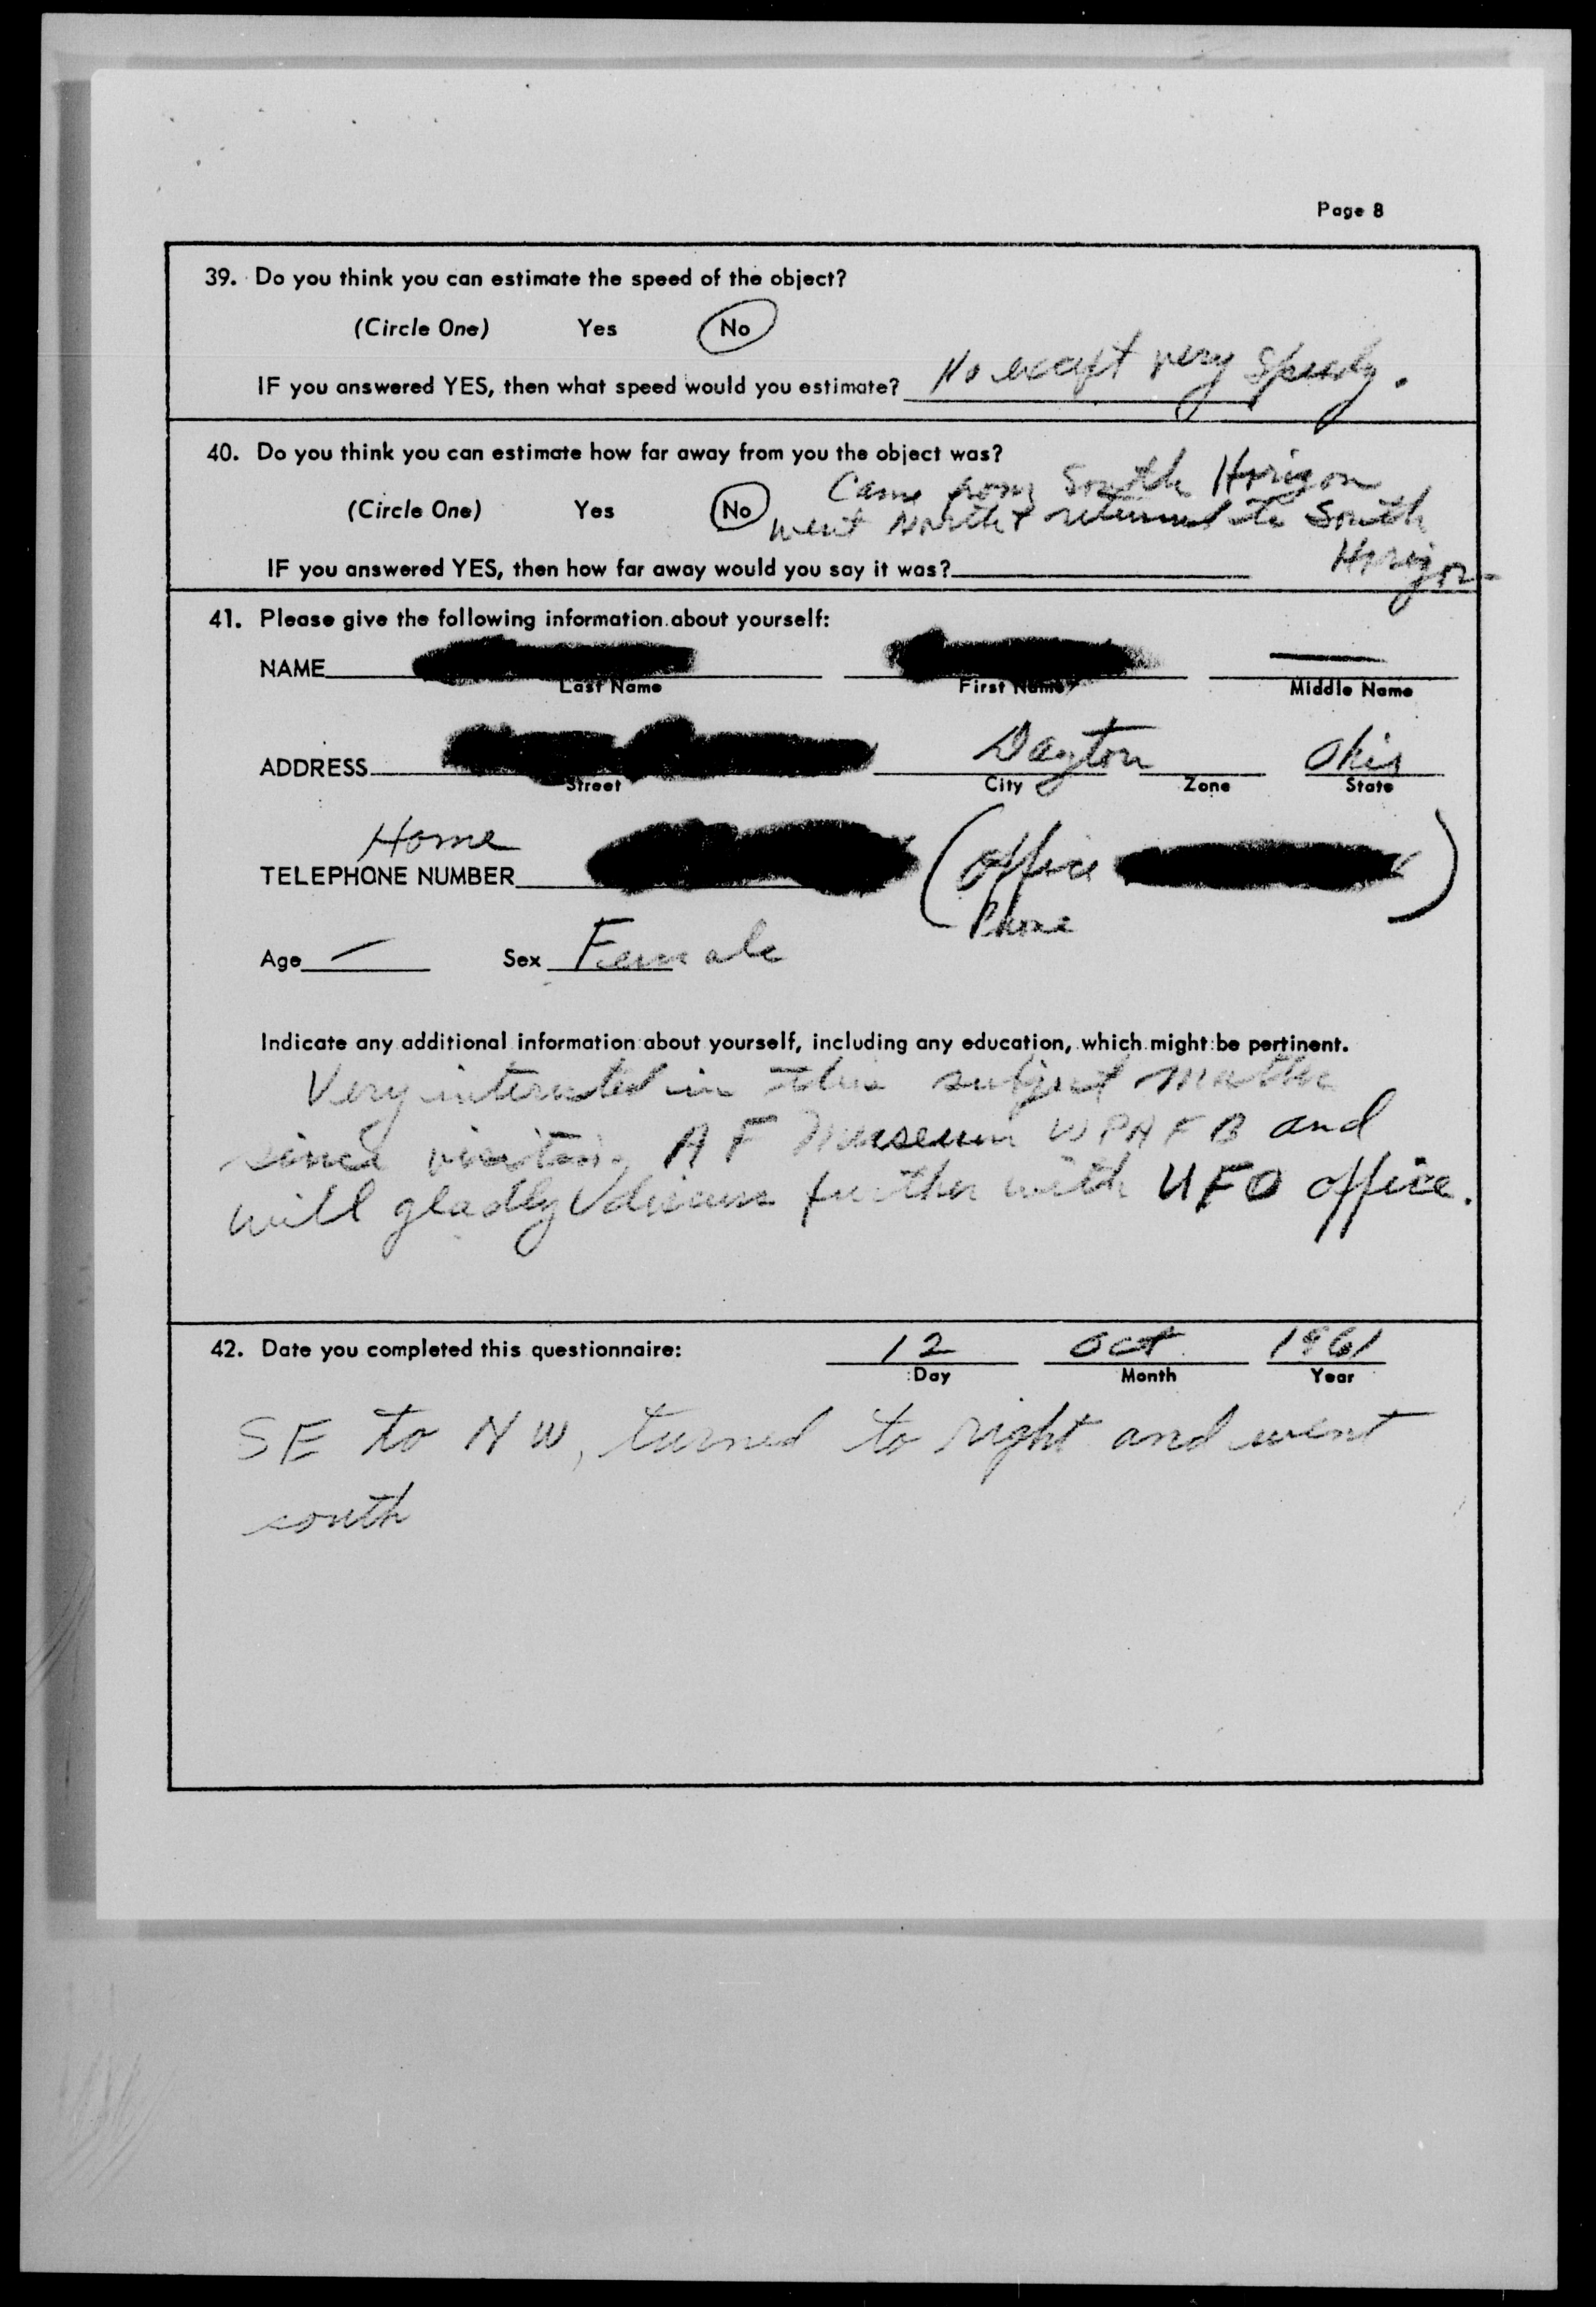 Page 8
39. Do you think you can estimate the speed of the object?
(Circle One) Yes No
IF you answered YES, then what speed would you estimate? No except very speedy.
40. Do you think you can estimate how far away from you the object was?
Came from South Horizon
(Circle One) Yes No went North & returned to South
Horizon
IF you answered YES, then how far away would you say it was?
41. Please give the following information about yourself:
NAME
Last Name First Name Middle Name
ADDRESS Dayton Ohio
Street City Zone State
Home
TELEPHONE NUMBER (Office
Phone)
Age — Sex Female
Indicate any additional information about yourself, including any education, which might be pertinent.
Very interested in this subject matter
since visiting AF Museum WPAFB and
will gladly discuss further with UFO office.
42. Date you completed this questionnaire: 12 Oct 1961
Day Month Year
SE to NW, turned to right and went
south